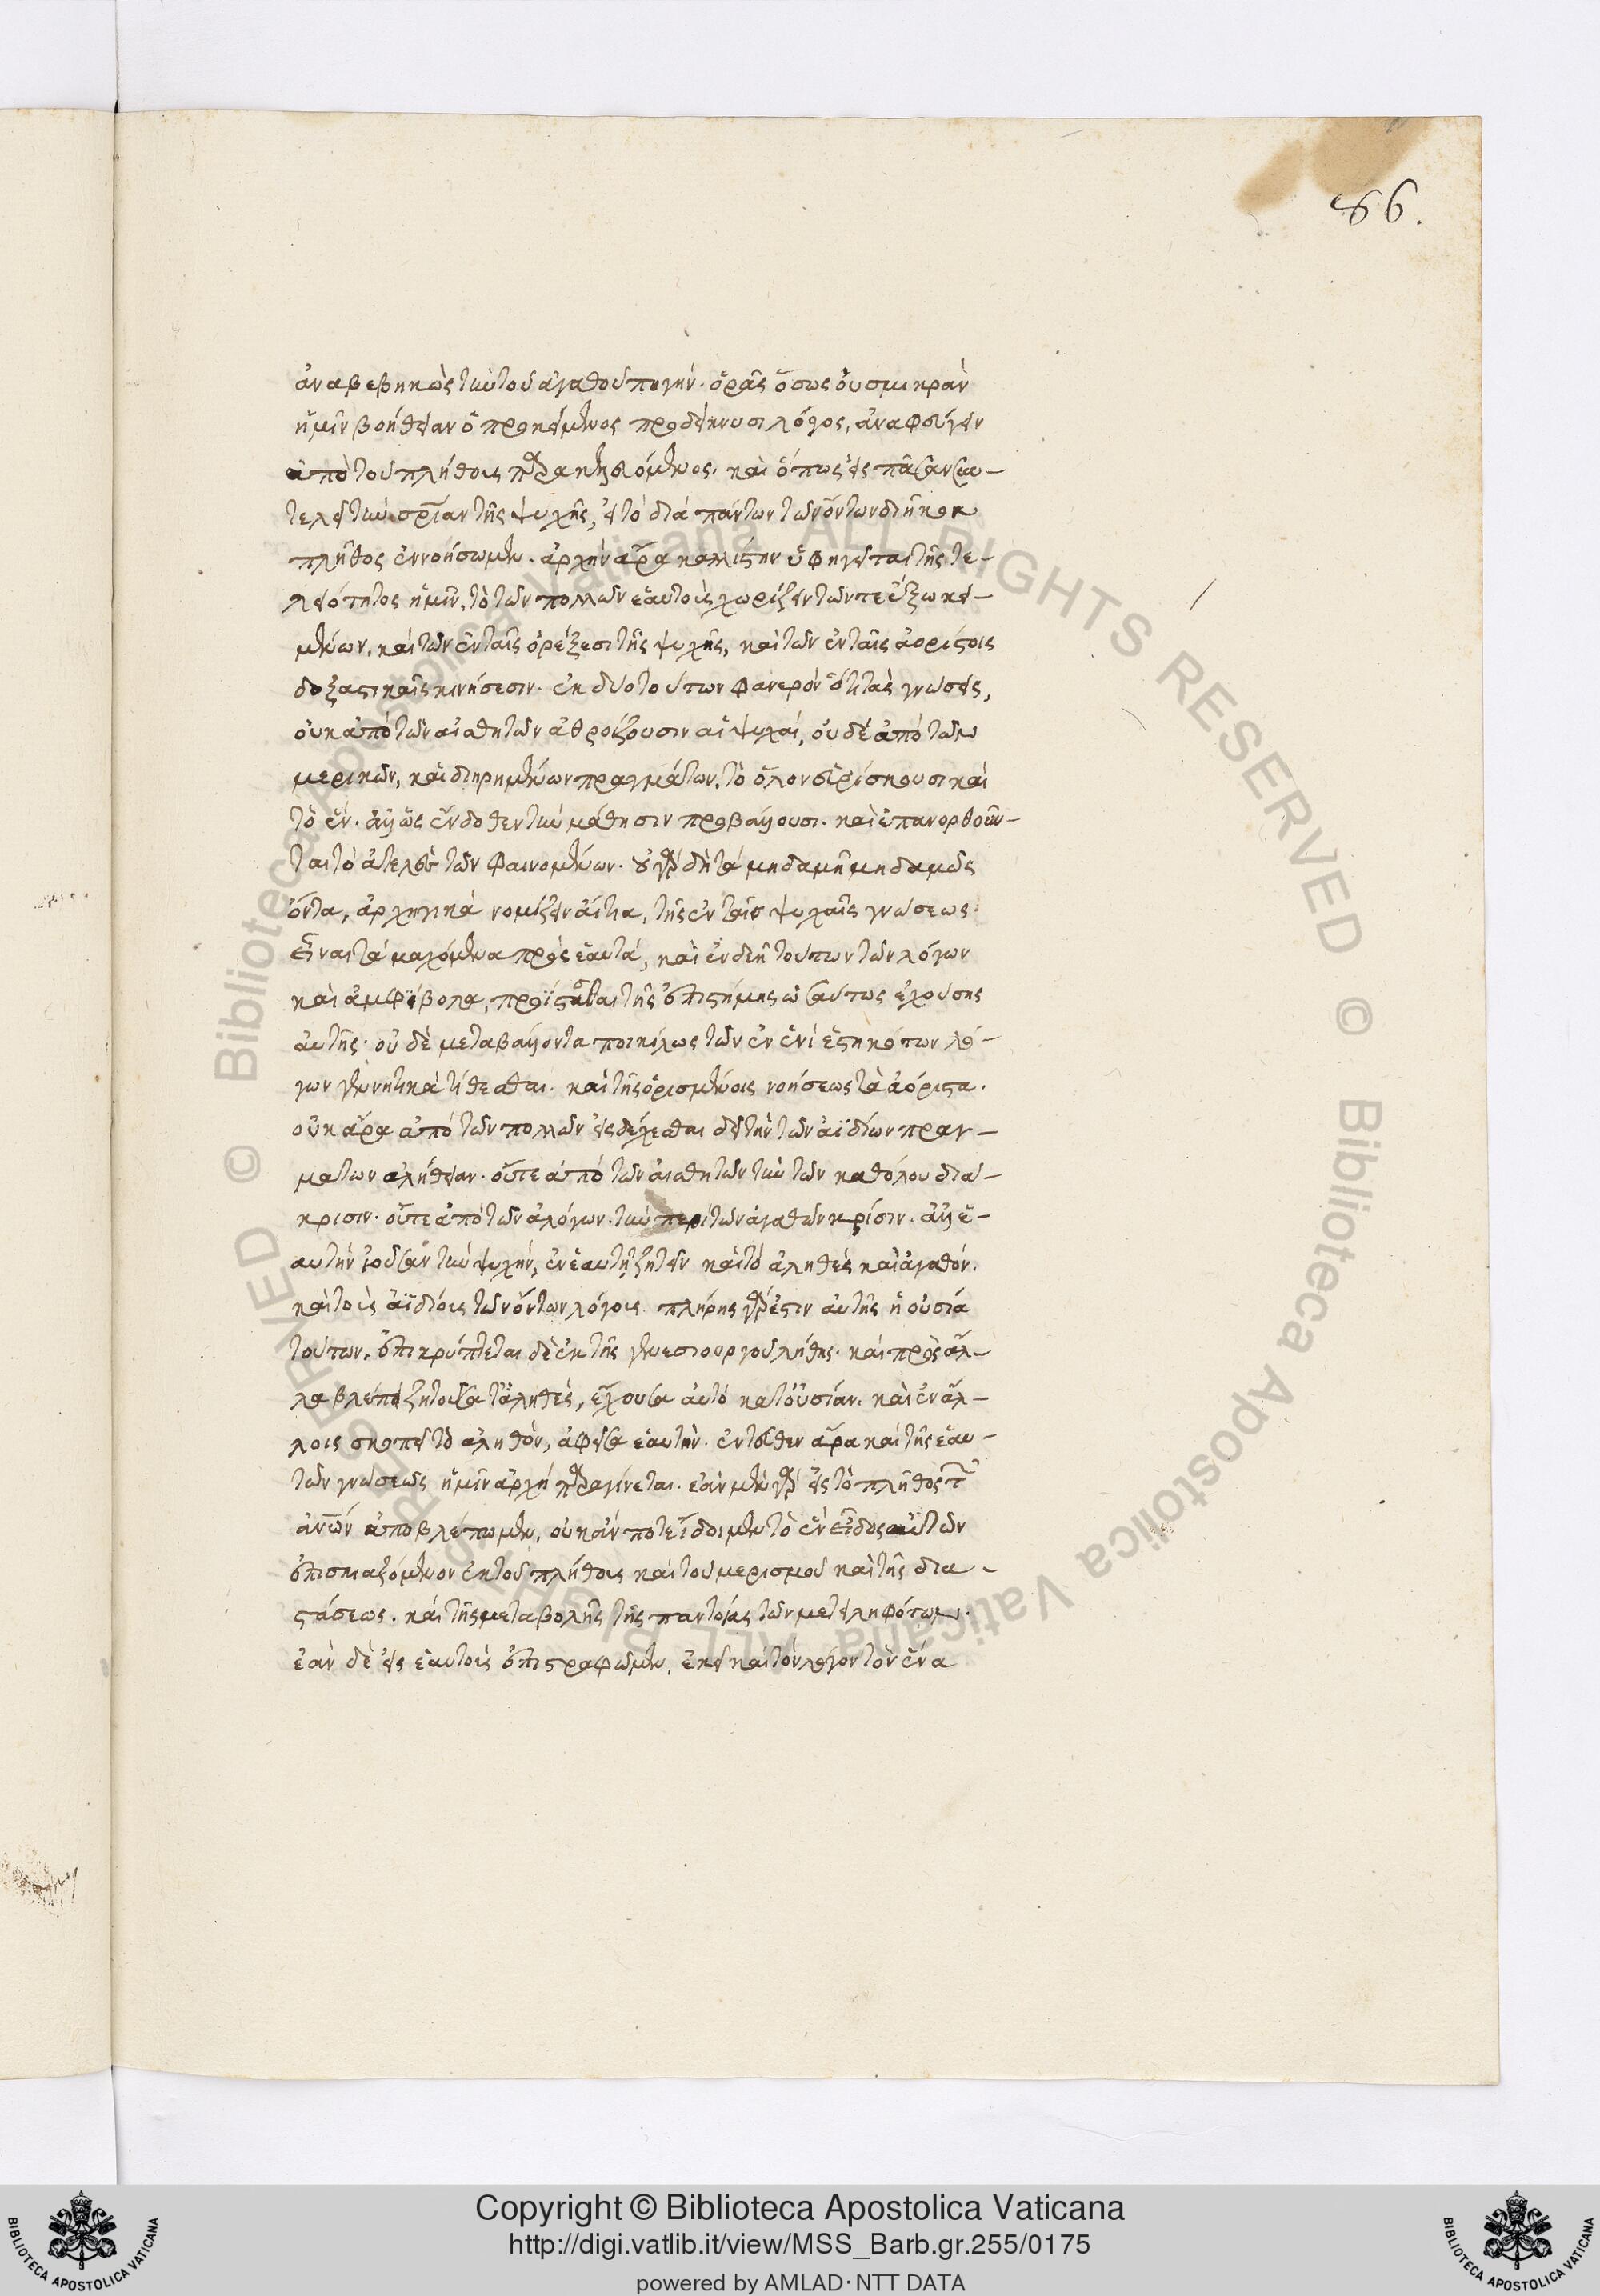 86.
ἀναβεβηκὼς τὴν τοῦ ἀγαθοῦ πηγήν. ὁρᾷς ὅπως οὐ σμικρὰν
ἡμῖν βοήθειαν ὁ προκείμενος προδείκνυσι λόγος, ἀναφεύγειν
ἀπὸ τοῦ πλήθους παρακελευόμενος. καὶ ὅπως εἰς πᾶσαν συν-
τελεῖ τὴν σωτηρίαν τῆς ψυχῆς, εἰ τὸ διὰ πάντων τῶν ὄντων διῆκον
πλῆθος ἐννοήσωμεν. ἀρχὴν ἄρα καλλίστην ὑφηγεῖται τῆς τε-
λειότητος ἡμῖν, τὸ τῶν πολλῶν ἑαυτοὺς χωρίζειν τῶν τε ἔξω κει-
μένων, καὶ τῶν ἐν ταῖς ὀρέξεσι τῆς ψυχῆς, καὶ τῶν ἐν ταῖς ἀορίστοις
δοξαστικαῖς κινήσεσιν. ἐκ δὲ τούτων φανερὸν ὅτι τὰς γνώσεις,
οὐκ ἀπὸ τῶν αἰσθητῶν ἀθροίζουσιν αἱ ψυχαί, οὐδὲ ἀπὸ τῶν
μερικῶν, καὶ διῃρημένων πραγμάτων, τὸ ὅλον εὑρίσκουσι καὶ
τὸ ἕν. ἀλλ' ὡς ἔνδοθεν τὴν μάθησιν προβάλλουσι. καὶ ἐπανορθοῦν-
ται τὸ ἀτελὲς τῶν φαινομένων. οὐ γὰρ δὴ τὰ μηδαμῆ μηδαμῶς
ὄντα, ἀρχηγικὰ νομίζειν αἴτια, τῆς ἐν ταῖς ψυχαῖς γνώσεως.
εἶναι τὰ μαχόμενα πρὸς ἑαυτά, καὶ ἐνδεῆ τούτων τῶν λόγων
καὶ ἀμφίβολα, προΐστασθαι τῆς ἐπιστήμης ὡσαύτως ἐχούσης
αὐτῆς· οὐδὲ μεταβάλλοντα ποικίλως τῶν ἐν ἑνὶ ἑστηκότων λό-
γων γεννητικὰ τίθεσθαι. καὶ τῆς ὁρισμένης νοήσεως τὰ ἀόριστα.
οὐκ ἄρα ἀπὸ τῶν πολλῶν εἰσδέχεσθαι δεῖ τὴν τῶν ἀϊδίων πραγ-
μάτων ἀλήθειαν. οὔτε ἀπὸ τῶν αἰσθητῶν τὴν τῶν καθόλου διά-
κρισιν. οὔτε ἀπὸ τῶν ἀλόγων. τὴν περὶ τῶν ἀγαθῶν κρίσιν. ἀλλ' ἑ-
αυτὴν ἰοῦσαν τὴν ψυχήν, ἐν ἑαυτῇ ζητεῖν καὶ τὸ ἀληθὲς καὶ ἀγαθόν.
καὶ τοὺς ἀϊδίους τῶν ὄντων λόγους. πλήρης γάρ ἐστιν αὐτῆς ἡ οὐσία
τούτων. ἐπικρύπτεται δὲ ἐκ τῆς γενεσιουργοῦ λήθης. καὶ πρὸς ἄλ-
λα βλέπει ζητοῦσα τἀληθές, ἔχουσα αὐτὸ κατ' οὐσίαν. καὶ ἐν ἄλ-
λοις σκοπεῖ τὸ ἀληθὸν, ἀφεῖσα ἑαυτήν. ἐντεῦθεν ἄρα καὶ τῆς ἑαυ-
τῶν γνώσεως ἡμῖν ἀρχὴ παραγίνεται. ἐὰν μὲν γὰρ εἰς τὸ πλῆθος τῶν
ἀνων ἀποβλέπωμεν, οὐκ ἄν ποτε ἴδοιμεν τὸ ἓν εἶδος αὐτῶν
ἐπισκιαζόμενον ἐκ τοῦ πλήθους καὶ τοῦ μερισμοῦ καὶ τῆς δια-
στάσεως. καὶ τῆς μεταβολῆς τῆς παντοίας τῶν μετειληφότων.
ἐὰν δὲ εἰς ἑαυτοὺς ἐπιστραφῶμεν, ἐκεῖ καὶ τὸν λόγον τὸν ἕνα
Copyright © Biblioteca Apostolica Vaticana
http://digi.vatlib.it/view/MSS_Barb.gr.255/0175
powered by AMLAD·NTT DATA